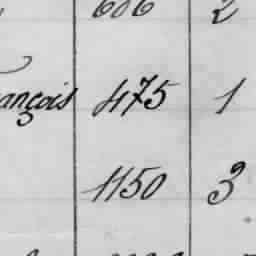 606 2
ançois 475 1
1150 3